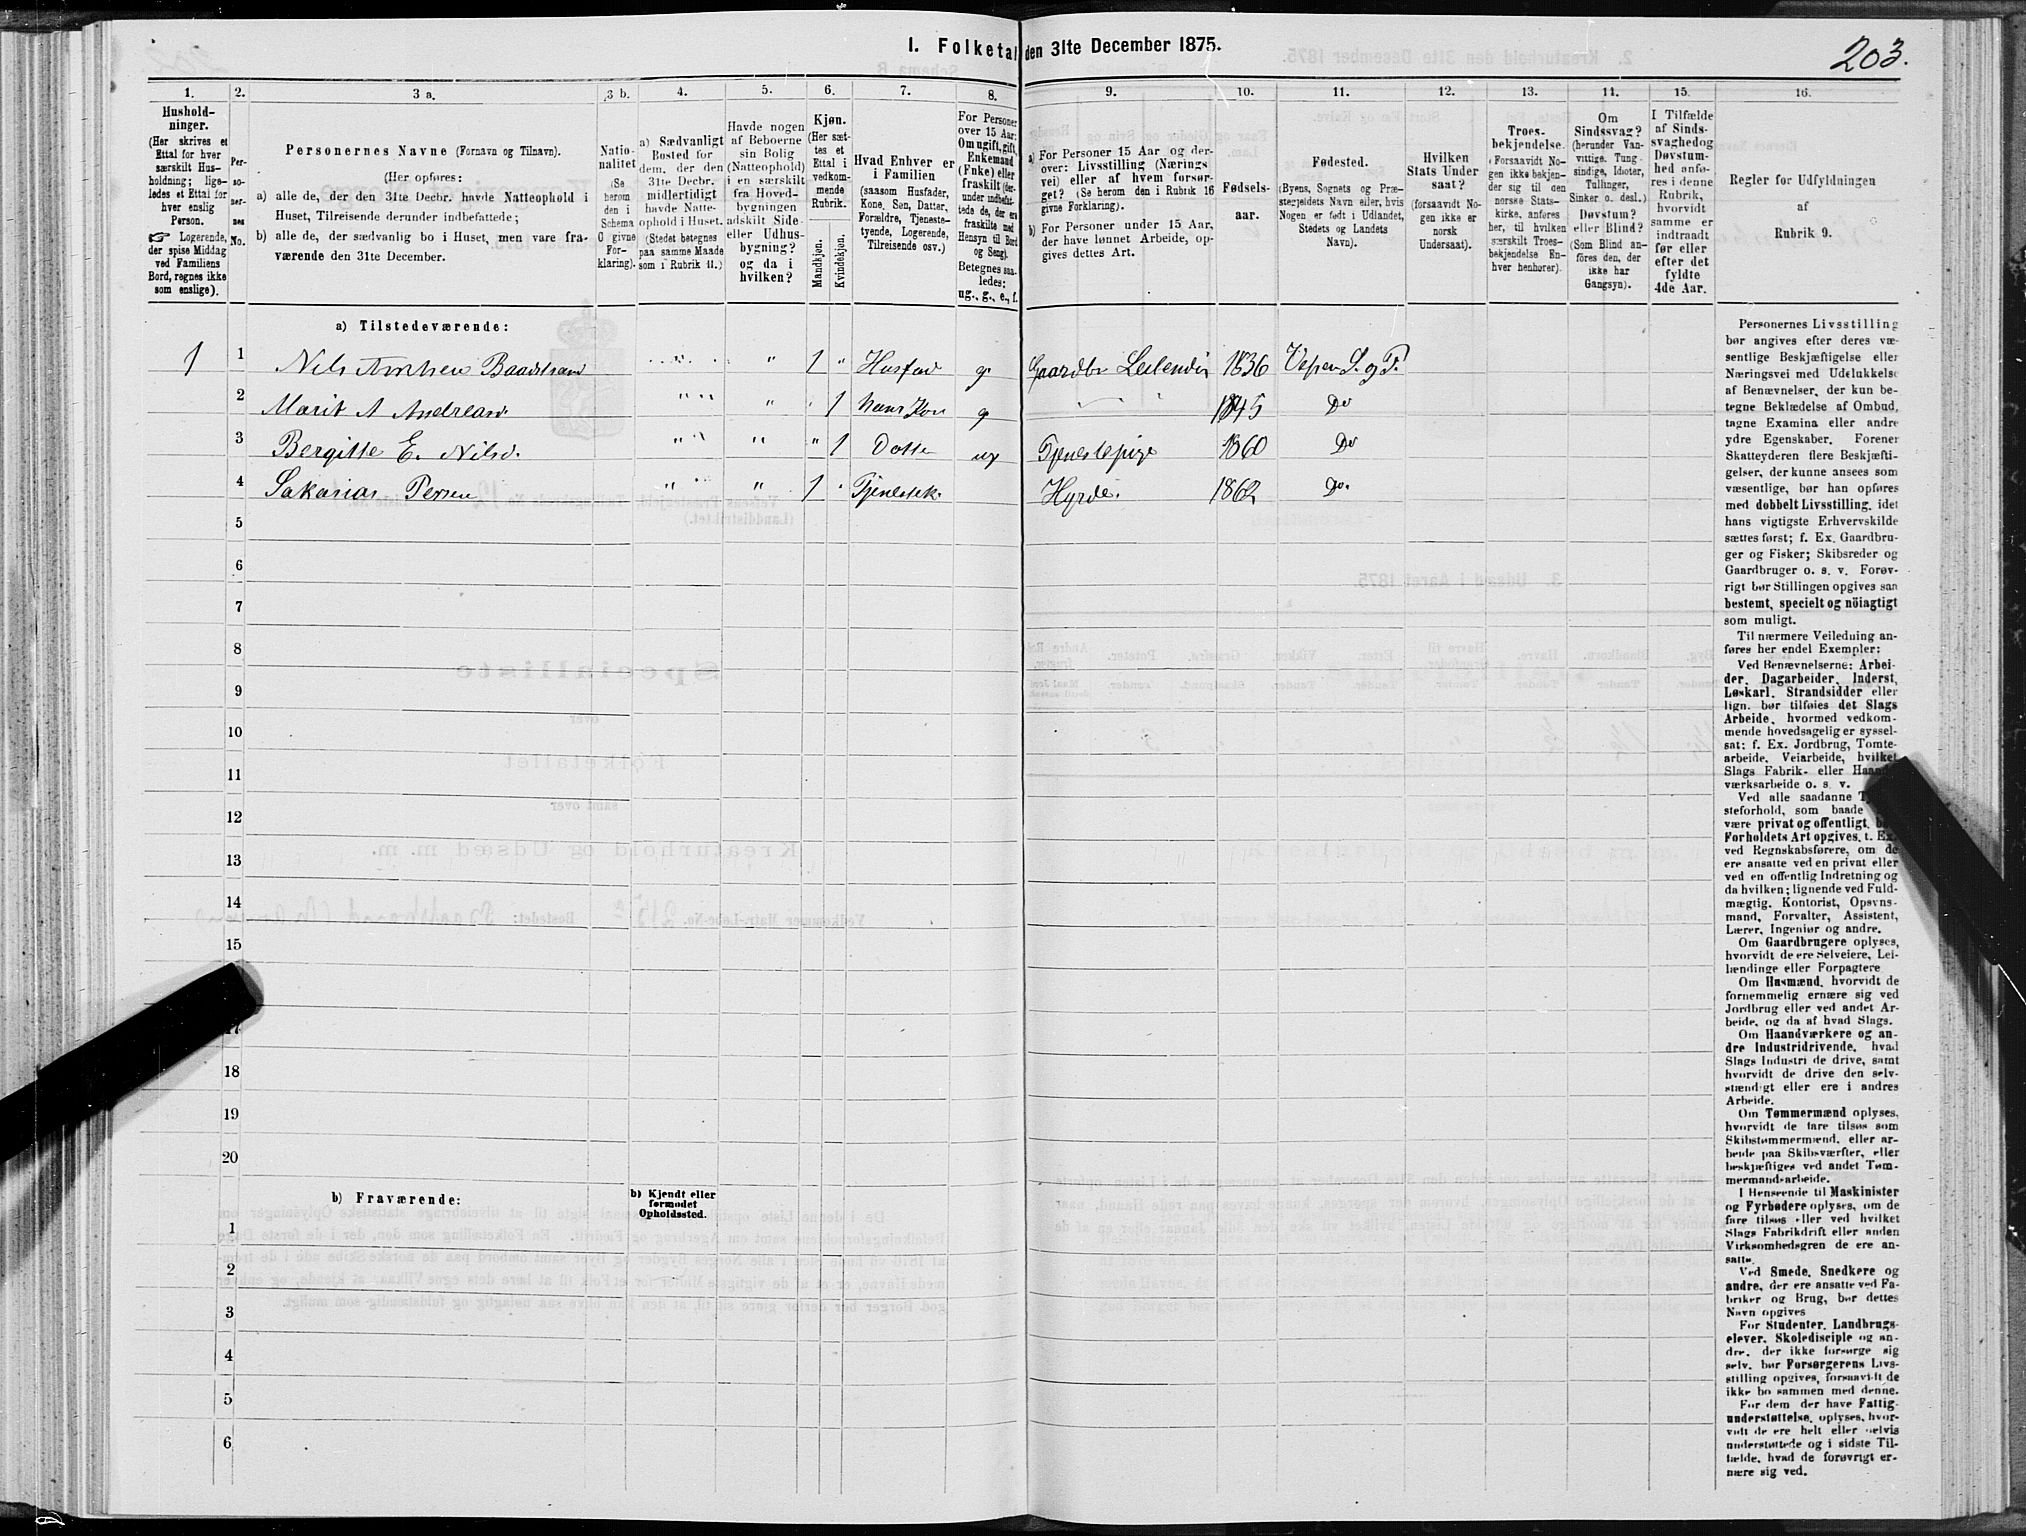 I. Folketal den 31te December 1875.
203.
1. 2. 3 a. 3 b. 4. 5. 6. 7. 8. 9. 10. 11. 12. 13. 14. 15. 16.
Hushold-
ninger.
(Her skrives et
Ettal for hver
særskilt Hus-
holdning; lige-
ledes et Ettal for
hver enslig
Person.
☞ Logerende,
der spise Middag
ved Familiens
Bord, regnes ikke
som enslige).
Per-
so-
ner-
nes
No.
Personernes Navne (Fornavn og Tilnavn).
(Her opføres:
a) alle de, der den 31te Decbr. havde Natteophold i
Huset, Tilreisende derunder indbefattede;
b) alle de, der sædvanlig bo i Huset, men vare fra-
værende den 31te December.
Natio-
nalitet
(Se
herom
den i
Schema
C givne
For-
klaring).
a) Sædvanligt
Bosted for
dem, der den
31te Decbr.
midlertidigt
havde Natte-
ophold i Huset.
(Stedet betegnes
paa samme Maade
som i Rubrik 11.)
Havde nogen
af Beboerne
sin Bolig
(Natteophold)
i en særskilt
fra Hoved-
bygningen
adskilt Side-
eller Udhus-
bygning?
og da i
hvilken?
Kjøn.
(Her sæt-
tes et
Ettal i
vedkom-
mende
Rubrik.
Mandkjøn.
Kvindekjøn.
Hvad Enhver er
i Familien
(saasom Husfader,
Kone, Søn, Datter,
Forældre, Tjeneste-
tyende, Logerende,
Tilreisende osv.)
For Personer
over 15 Aar:
Om ugift, gift,
Enkemand
(Enke) eller
fraskilt (der-
under indbefat-
tede de, der ere
fraskilte med
Hensyn til Bord
og Seng).
Betegnes saa-
ledes:
ug., g., e., f.
a) For Personer 15 Aar og der-
over: Livsstilling (Nærings
vei) eller af hvem forsør-
get? (Se herom den i Rubrik 16
givne Forklaring).
b) For Personer under 15 Aar,
der have lønnet Arbeide, op-
gives dettes Art.
Fødsels-
aar.
Fødested.
(Byens, Sognets og Præ-
stegjeldets Navn eller, hvis
Nogen er født i Udlandet,
Stedets og Landets
Navn).
Hvilken
Stats Under
saat?
(forsaavidt No-
gen ikke er
norsk
Undersaat).
Troes-
bekjendelse.
(Forsaavidt No-
gen ikke bekjen-
der sig til den
norske Stats-
kirke, anføres
her, til hvilken
særskilt Troes-
bekjendelse En-
hver henhører).
Om
Sindssvag?
(herunder Van-
vittige, Tung-
sindige, Idioter,
Tullinger,
Sinker o. desl.)
Døvstum?
eller Blind?
(Som Blind an-
føres den, der
ikke har
Gangsyn).
I Tilfælde
af Sinds-
svaghed og
Døvstum-
hed anfø-
res i denne
Rubrik,
hvorvidt
samme er
indtraadt
før eller
efter det
fyldte
4de Aar.
Regler for Udfyldningen
af
Rubrik 9.
a) Tilstedeværende:
1 1 Nils Baadstrand " 1 " Husfad g. Gaardbr Leilendin 1836 S. og P.
2 Marit A Andreasd " " 1 hans Kon g " 1845 Do
3 Bergitte E. Nilsd. " " " 1 Datte ug Tjenestepige 1860 Do
4 Sakarias Persen " " 1 " Tjenestek Hyrde. 1862 Do.
5
6
7
8
9
10
11
12
13
14
15
17
18
19
20
b) Fraværende:
b) Kjendt eller
formodet
Opholdssted.
1
2
3
4
5
6
Personernes Livsstilling
bør angives efter deres væ-
sentlige Beskjæftigelse eller
Næringsvei med Udelukkelse
af Benævnelser, der kun be-
tegne Beklædelse af Ombud,
tagne Examina eller andre
ydre Egenskaber. Forener
Skatteyderen flere Beskjæfti-
gelser, der kunne ansees som
væsentlige, bør han opføres
med dobbelt Livsstilling, idet
hans vigtigste Erhvervskilde
sættes først; f. Ex. Gaardbru-
ger og Fisker; Skibsreder og
Gaardbruger o. s. v. Forøv-
rigt bør Stillingen opgives saa
bestemt, specielt og nöiagtigt
som muligt.
Til nærmere Veiledning an-
føres her endel Exempler:
Ved Benævnelserne: Arbei-
der, Dagarbeider, Inderst,
Løskarl, Strandsidder eller
lign. bør tilføies det Slags
Arbeide, hvormed vedkom-
mende hovedsagelig er syssel-
sat; f. Ex. Jordbrug, Tomte-
arbeide, Veiarbeide, hvilket
Slags Fabrik- eller Haand-
værksarbeide o. s. v.
Ved alle saadanne
steforhold, som baade
være privat og offentligt,
Forholdets Art opgives, t. Ex.
ved Regnskabsførere, om de
ere ansatte ved en privat eller
ved en offentlig Indretning og
da hvilken; lignende ved Fuld-
mægtig, Kontorist, Opsyns-
mand, Forvalter, Assistent,
Lærer, Ingeniør og andre.
Om Gaardbrugere oplyses,
hvorvidt de ere Selveiere, Lei-
lændinge eller Forpagtere
Om Husmænd, hvorvidt de
fornemmelig ernære sig ved
Jordbrug eller ved andet Ar-
beide, og da af hvad Slags.
Om Haandværkere og an-
dre Industridrivende, hvad
Slags Industri de drive, samt
hvorvidt de drive den selv-
stændigt eller ere i andres
Arbeide.
Om Tømmermænd oplyses,
hvorvidt de fare tilsøs som
Skibstømmermænd, eller ar-
beide paa Skibsværfter, eller
beskjæftiges ved andet Tøm-
mermandsarbeide.
I Henseende til Maskinister
og Fyrbødere oplyses, om de
fare tilsøs eller ved hvilket
Slags Fabrikdrift eller anden
Virksomhedsgren de ere an-
satte.
Ved Smede, Snedkere og
andre, der ere ansatte ved Fa-
briker og Brug, bør dettes
Navn opgives
For Studenter, Landbrugs-
elever, Skoledisciple og an-
dre, der ikke forsørge sig
selv, bør Forsørgerens Livs-
stilling opgives, forsaavidt de
ikke bo sammen med denne.
For dem der have Fattig-
understøttelse, oplyses, hvor-
vidt de ere helt eller delvis
understøttede og i sidste Til-
fælde, hvad de forøvrigt er-
nære sig ved.